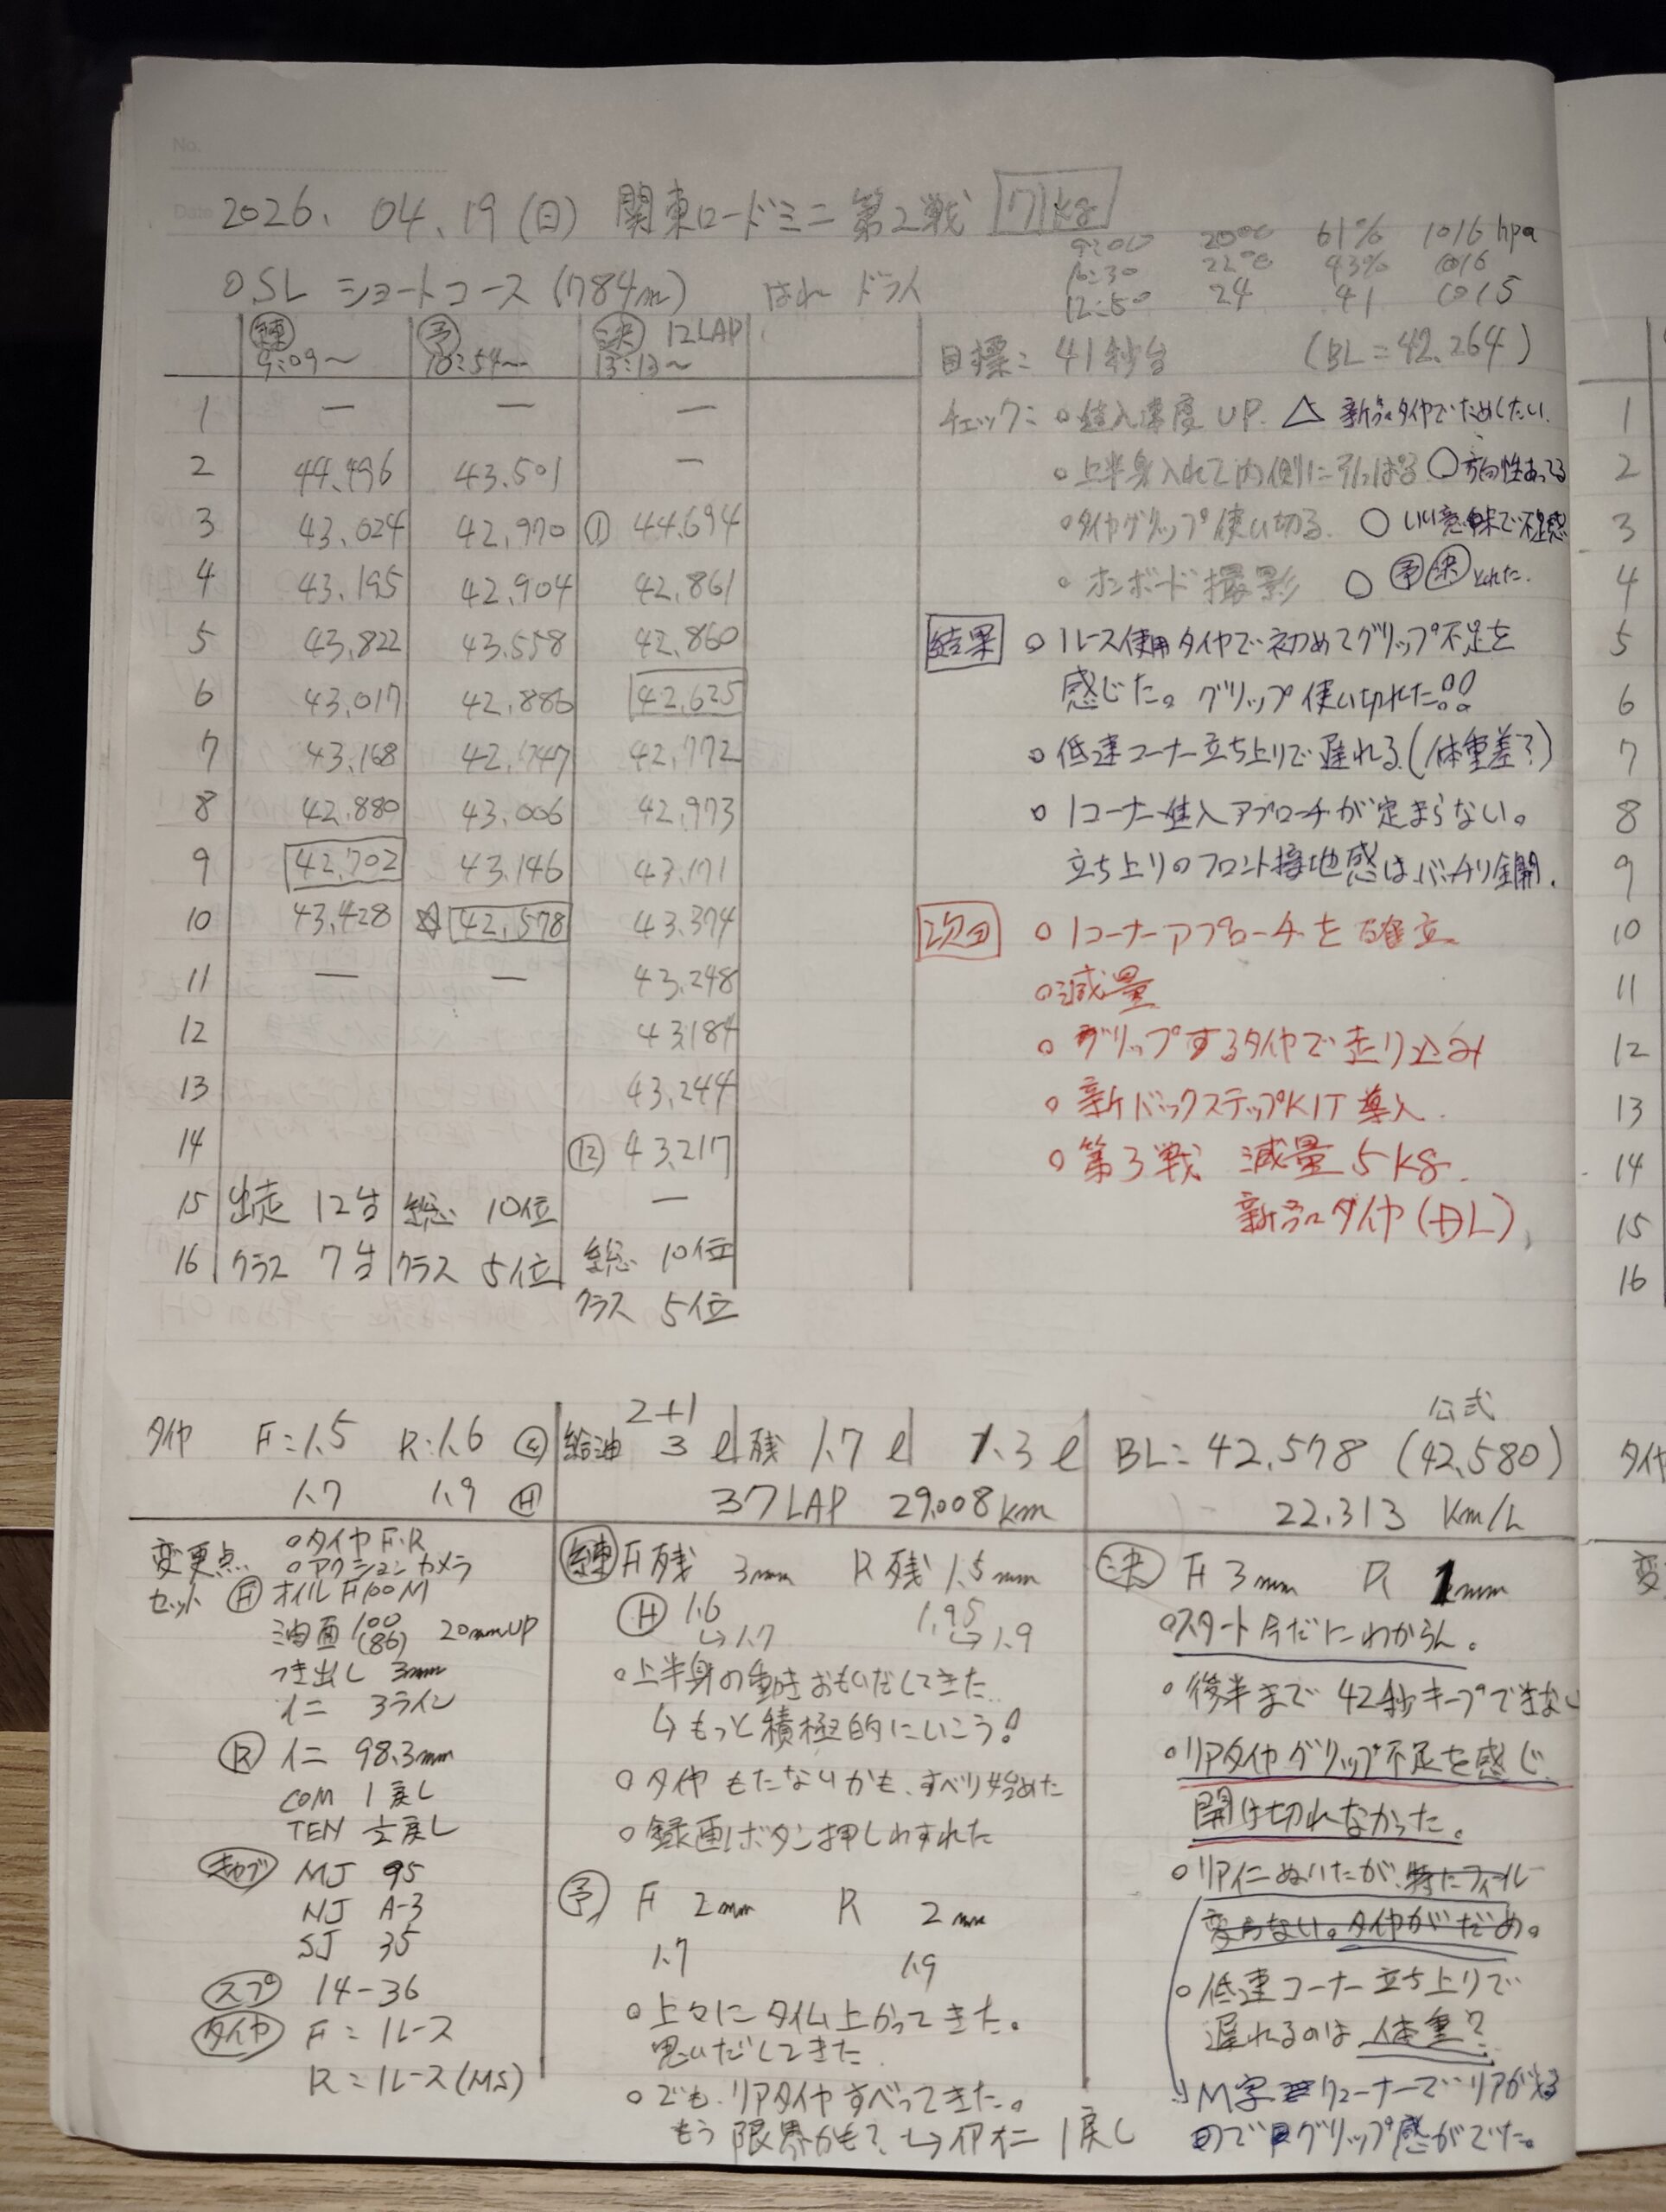 No.
Date
2026. 04. 19 (日) 関東ロードミニ 第2戦 71kg
9:00 20℃ 61% 1016 hpa
10:30 22℃ 43% 1016
12:50 24 41 1015
○SL ショートコース (784m) はれ ドライ
練 予 決 12LAP
9:09〜 10:54〜 13:13〜
1 — — —
2 44.496 43.501 —
3 43.024 42.970 ① 44.694
4 43.195 42.904 42.861
5 43.822 43.558 42.860
6 43.017 42.886 42.625
7 43.168 42.747 42.772
8 42.880 43.006 42.973
9 42.702 43.146 43.171
10 43.428 ☆ 42.578 43.374
11 — — 43.248
12 43.184
13 43.244
14 ⑫ 43.217
15 出走 12台 総 10位 —
16 クラス 7台 クラス 5位 総 10位
クラス 5位
目標: 41秒台 (BL=42.264)
チェック: ○進入速度UP. △ 新品タイヤでためしたい.
○上半身入れて内側に引っぱる ○方向性あってる
○タイヤグリップ使い切る. ○ いい意味で不足感
○オンボード撮影 ○ 予 決 とれた.
結果 ○1レース使用タイヤで初めてグリップ不足を
感じた。グリップ使い切れた!!
○低速コーナー立ち上りで遅れる(体重差?)
○1コーナー進入アプローチが定まらない。
立ち上りのフロント接地感はバッチリ全開.
次回 ○1コーナーアプローチを確立
○減量
○グリップするタイヤで走り込み
○新バックステップKIT導入.
○第3戦 減量5kg.
新品タイヤ(DL)
タイヤ F:1.5 R:1.6 ㋹
1.7 1.9 Ⓗ
2+1
給油 3ℓ 残 1.7ℓ 1.3ℓ
37LAP 29.008km
公式
BL: 42.578 (42.580)
22.313 Km/L
変更点.. ○タイヤ F.R
○アクションカメラ
セット Ⓕ オイル F100M
油面 100 (86) 20mmUP
つき出し 3mm
イニ 3ライン
Ⓡ イニ 98.3mm
COM 1戻し
TEN ½戻し
キャブ MJ 95
NJ A-3
SJ 35
スプ 14-36
タイヤ F=1レース
R=1レース(MS)
練 F残 3mm R残 1.5mm
Ⓗ 1.6 1.95
↳1.7 ↳1.9
○上半身の動きおもいだしてきた.
↳もっと積極的にいこう!
○タイヤもたないかも、すべり始めた
○録画ボタン押しわすれた
予 F 2mm R 2mm
1.7 1.9
○上々にタイム上がってきた。
思いだしてきた.
○でも.リアタイヤすべってきた。
もう限界かも?、↳リアイニ 1戻し
決 F 3mm R 1mm
○スタート今だにわからん。
○後半まで42秒キープできない
○リアタイヤグリップ不足を感じ
開け切れなかった。
○リアイニぬいたが、特にフィール
変らない。タイヤがだめ。
○低速コーナー立ち上りで
遅れるのは体重?
↳M字
グリップ感がでた。
1
2
3
4
5
6
7
8
9
10
11
12
13
14
15
16
タイヤ
変